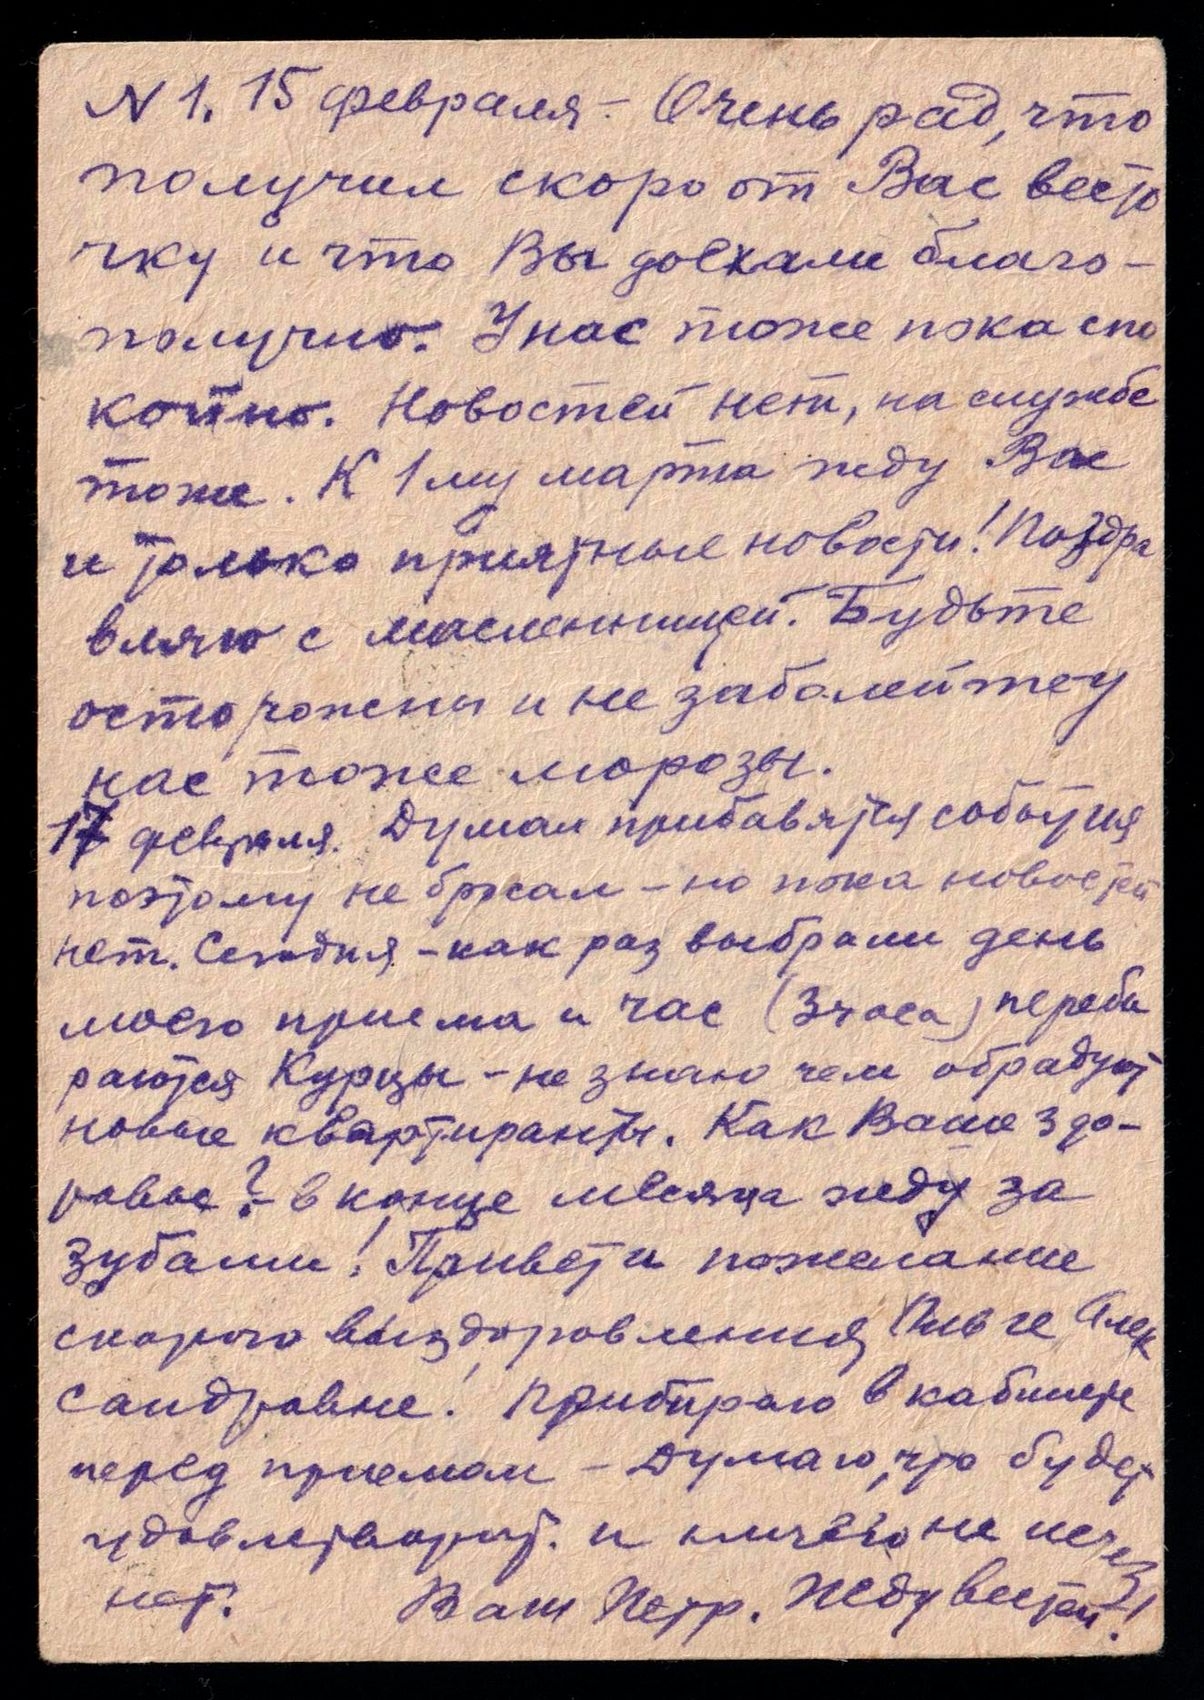 N 1. 15 февраля - Очень рад, что
получил скоро от Вас весто
чку и что Вы доехали благо-
получно. У нас тоже пока спо
койно. Новостей нет, на службе
тоже. К 1 му марта жду Вас
и только приятные новости! Поздра
вляю с масленницей. Будьте
осторожны и не заболейте у
нас тоже морозы.
17 февраля. Думал прибавятся события
поэтому не бросал - но пока новостей
нет. Сегодня - как раз выбрали день
моего приема и час (3 часа) переби
раются Курцы - не знаю чем обрадуют
новые квартиранты. Как Ваше здо-
ровье? - в конце месяца жду за
зубами! Привет и пожелание
скорого выздоровления Ольге Алек
сандровне! Прибираю в кабинете
перед приемом - Думаю, что будет
удовлетворит. и ничего не исчез
нет. Ваш Петр. Жду вестей!